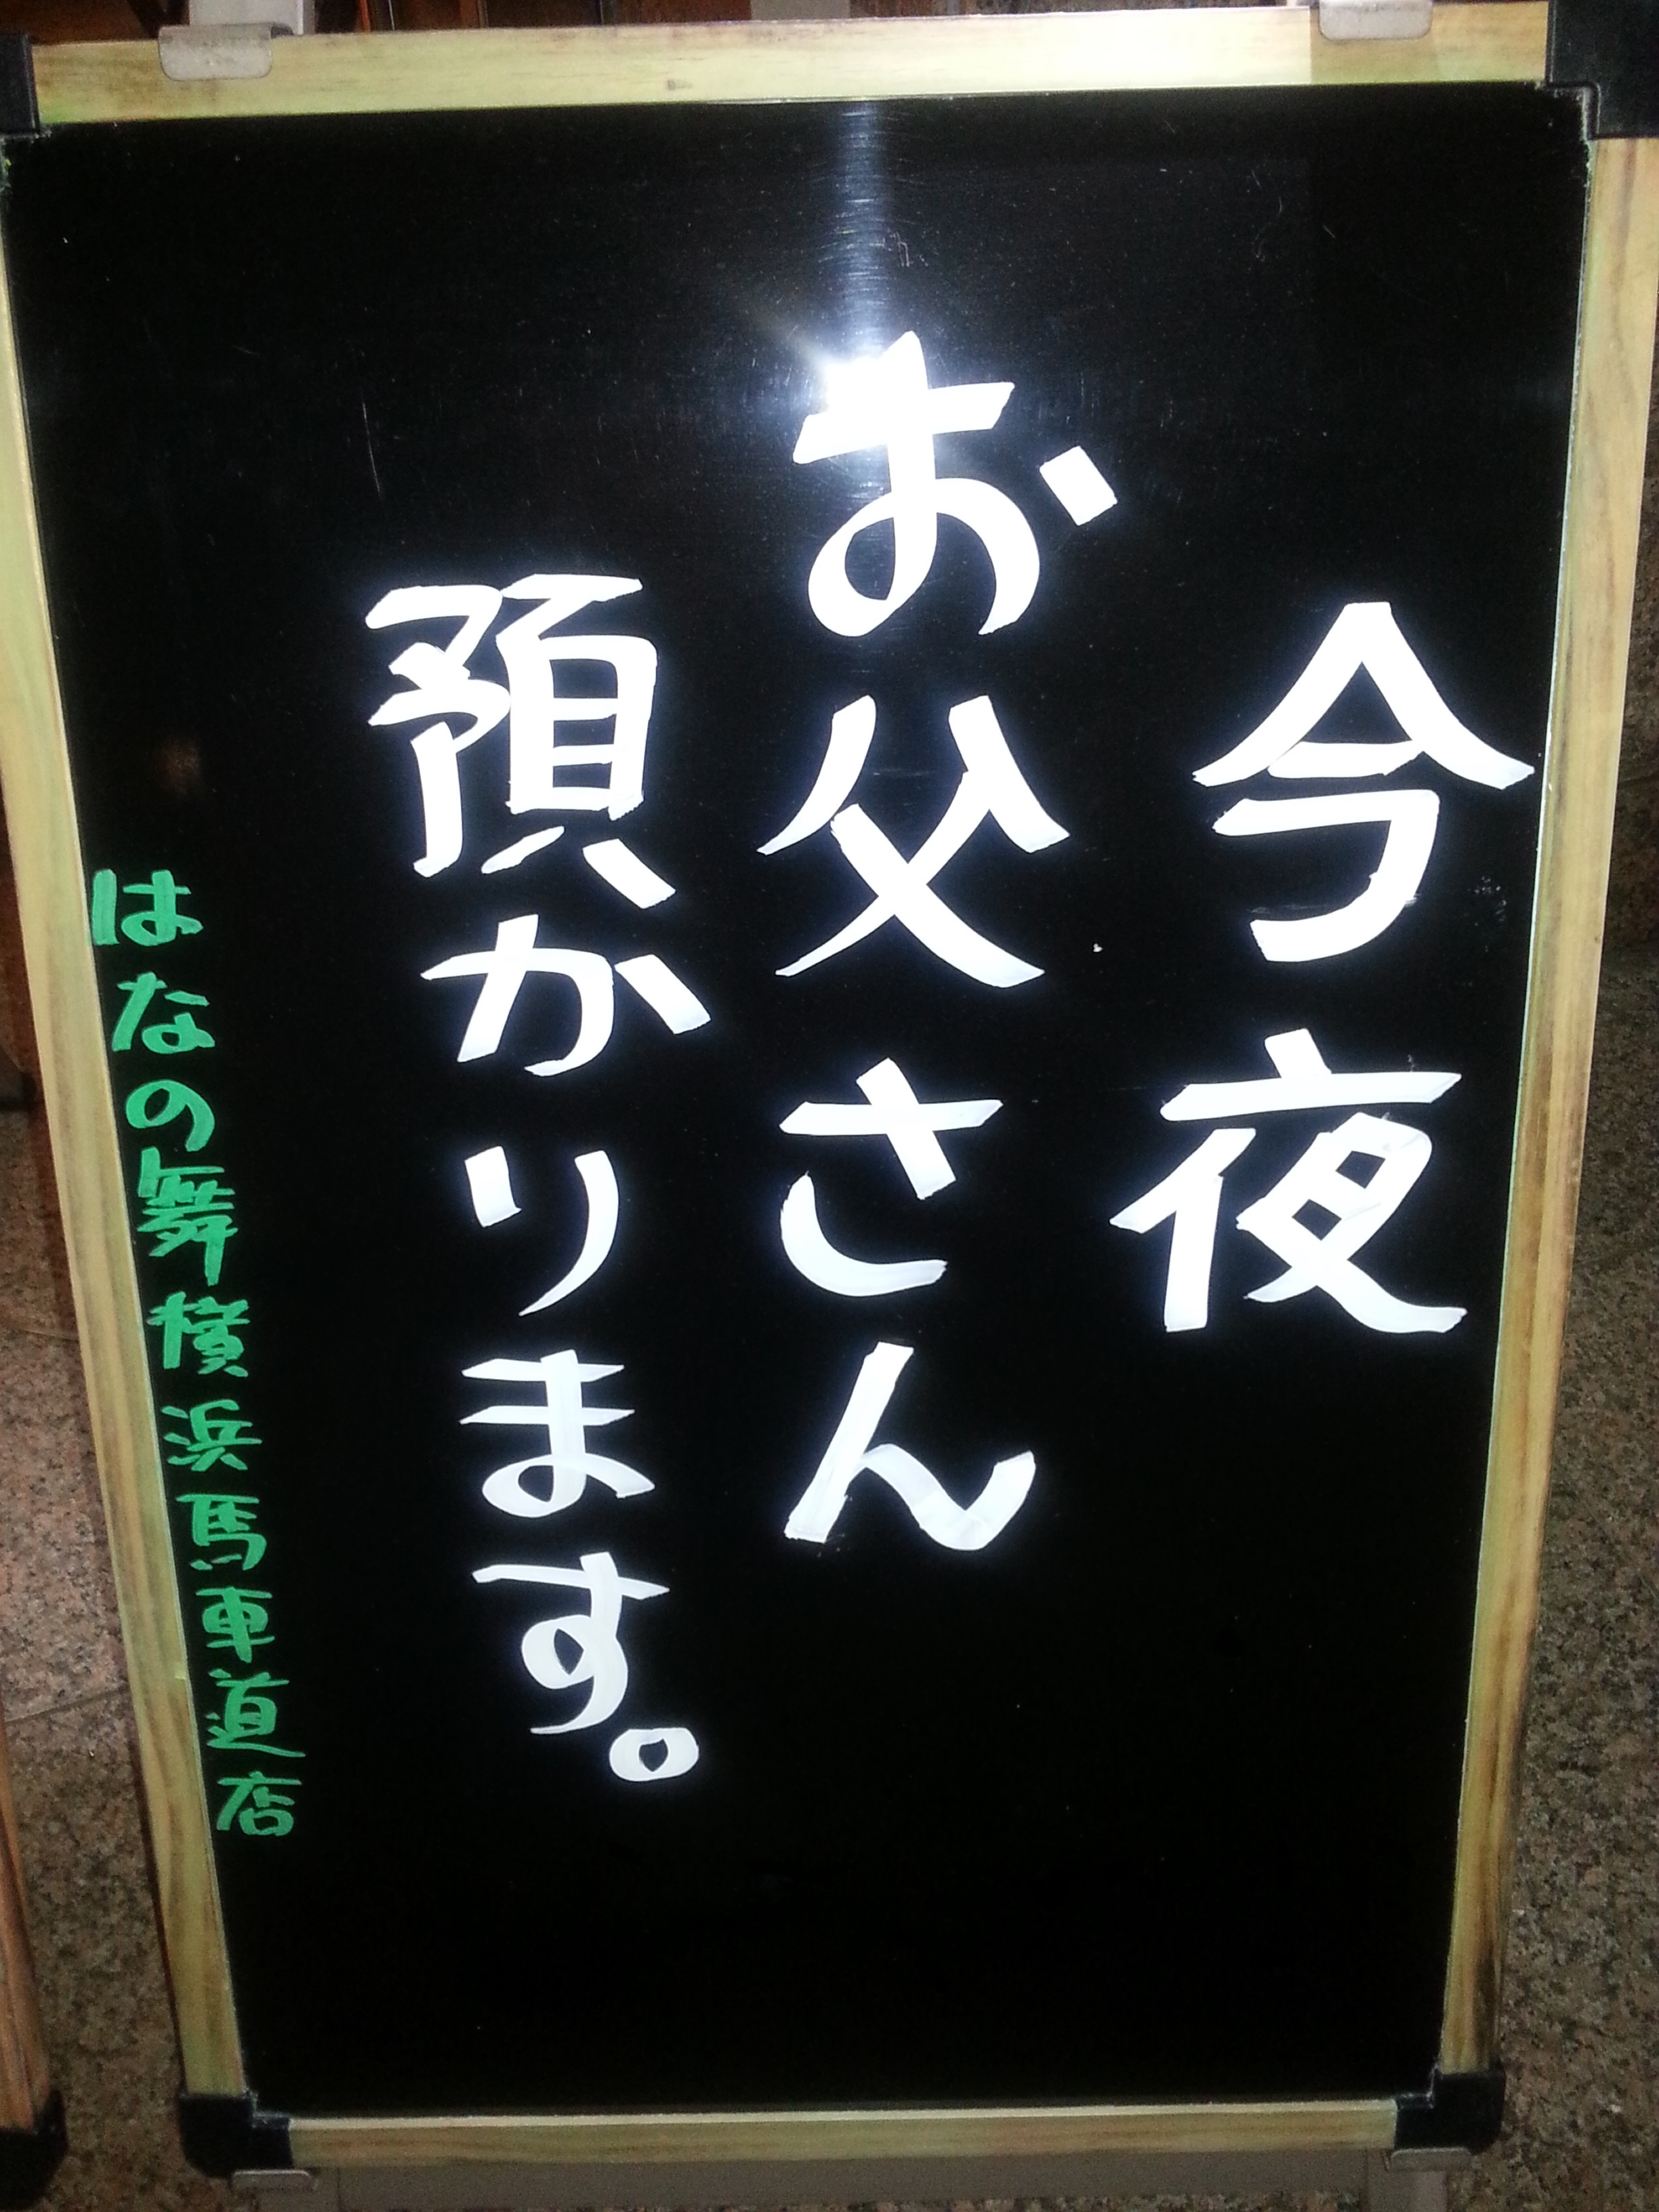 今夜
お父さん
預かります。
はなの舞横浜馬車道店